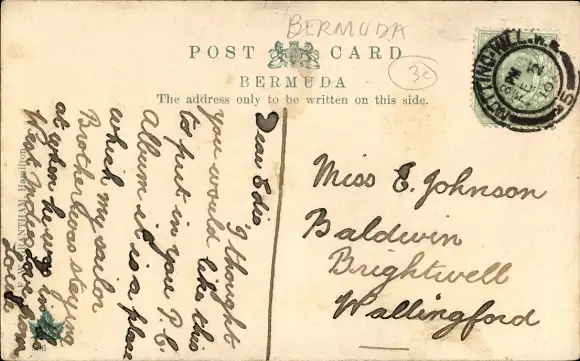 BERMUDA
POST CARD
3c
BERMUDA
The address only to be written on this side.
NOTTING-HILL. W.
8 PM
FE 2
15
Dear Edie
I thought
you would like this
to put in your P.C.
Album it is a place
which my sailor
Brother was staying
at when he was in the
West Indies
love from
Louie
Miss E. Johnson
Baldwin
Brightwell
Wallingford
Hamilton